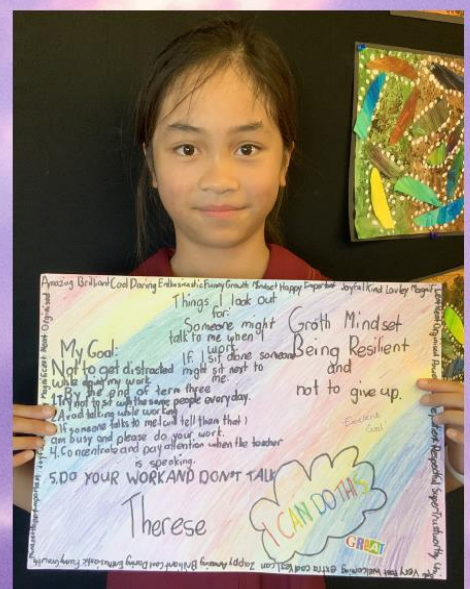 Amazing Brilliant Cool Daring Enthusiastic Funny Growth Mindset Happy Important Joyful Kind Lovley
Things I look out
for:
Someone might
talk to me when I
work.
If I sit done someone
might sit next to
me.
Groth Mindset
Being Resilient
and
not to give up.
My Goal:
Not to get distracted
while doing my work
By the end of term three
1.Try not to sit with the same people everyday.
2.Avoid talking while working
3.If someone talks to me I will tell them that I
am busy and please do your work.
4.Concentrate and pay attention when the teacher
is speaking.
5.DO YOUR WORK AND DON'T TALK
Excellent
Goal
I CAN DO THIS
GREAT
Therese